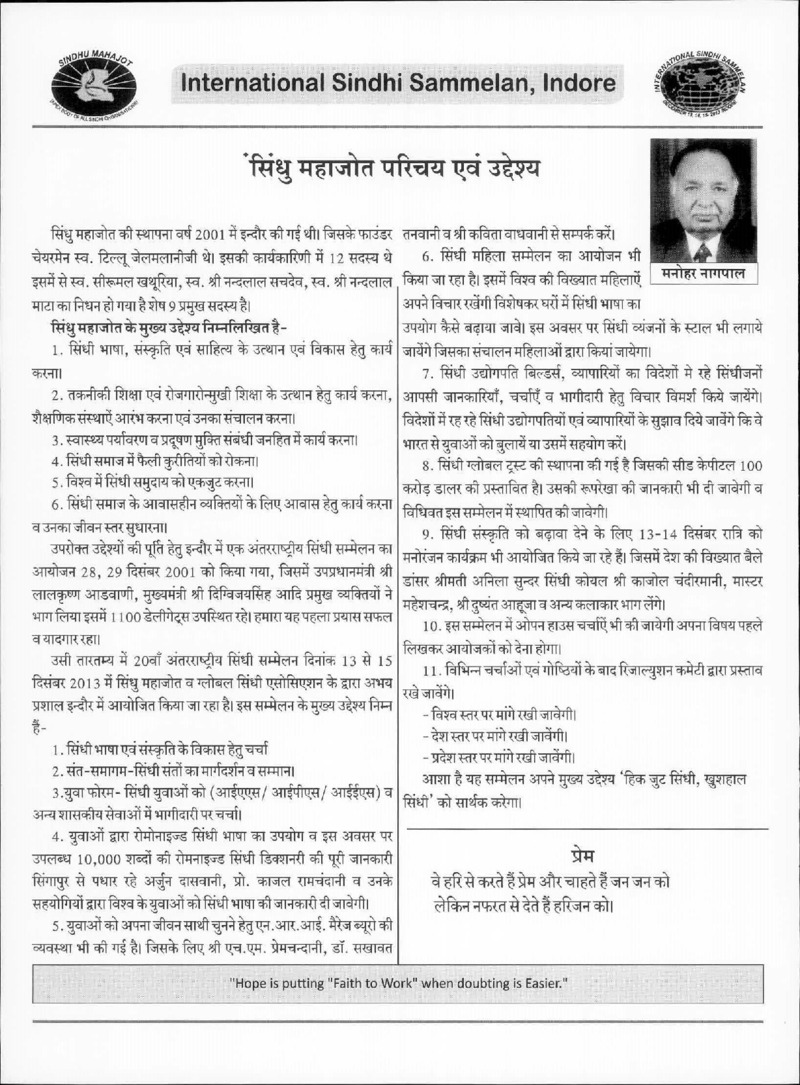 SINDHU MAHAJOT
International Sindhi Sammelan, Indore
INTERNATIONAL SINDHI SAMMELAN
DECEMBER 13, 14, 15- 2013 INDORE
सिंधु महाजोत परिचय एवं उद्देश्य
मनोहर नागपाल
सिंधु महाजोत की स्थापना वर्ष 2001 में इन्दौर की गई थी। जिसके फाउंडर
चेयरमेन स्व. टिल्लू जेलमलानीजी थे। इसकी कार्यकारिणी में 12 सदस्य थे
इसमें से स्व. सीरूमल खथूरिया, स्व. श्री नन्दलाल सचदेव, स्व. श्री नन्दलाल
माटा का निधन हो गया है शेष 9 प्रमुख सदस्य है।
सिंधु महाजोत के मुख्य उद्देश्य निम्नलिखित है-
1. सिंधी भाषा, संस्कृति एवं साहित्य के उत्थान एवं विकास हेतु कार्य
करना।
2. तकनीकी शिक्षा एवं रोजगारोन्मुखी शिक्षा के उत्थान हेतु कार्य करना,
शैक्षणिक संस्थाऐं आरंभ करना एवं उनका संचालन करना।
3. स्वास्थ्य पर्यावरण व प्रदूषण मुक्ति संबंधी जनहित में कार्य करना।
4. सिंधी समाज में फैली कुरीतियों को रोकना।
5. विश्व में सिंधी समुदाय को एकजुट करना।
6. सिंधी समाज के आवासहीन व्यक्तियों के लिए आवास हेतु कार्य करना
व उनका जीवन स्तर सुधारना।
उपरोक्त उद्देश्यों की पूर्ति हेतु इन्दौर में एक अंतरराष्ट्रीय सिंधी सम्मेलन का
आयोजन 28, 29 दिसंबर 2001 को किया गया, जिसमें उपप्रधानमंत्री श्री
लालकृष्ण आडवाणी, मुख्यमंत्री श्री दिग्विजयसिंह आदि प्रमुख व्यक्तियों ने
भाग लिया इसमें 1100 डेलीगेट्स उपस्थित रहे। हमारा यह पहला प्रयास सफल
व यादगार रहा।
उसी तारतम्य में 20वाँ अंतरराष्ट्रीय सिंधी सम्मेलन दिनांक 13 से 15
दिसंबर 2013 में सिंधु महाजोत व ग्लोबल सिंधी एसोसिएशन के द्वारा अभय
प्रशाल इन्दौर में आयोजित किया जा रहा है। इस सम्मेलन के मुख्य उद्देश्य निम्न
हैं-
1. सिंधी भाषा एवं संस्कृति के विकास हेतु चर्चा
2. संत-समागम-सिंधी संतों का मार्गदर्शन व सम्मान।
3.युवा फोरम- सिंधी युवाओं को (आईएएस/ आईपीएस/ आईईएस) व
अन्य शासकीय सेवाओं में भागीदारी पर चर्चा।
4. युवाओं द्वारा रोमोनाइज्ड सिंधी भाषा का उपयोग व इस अवसर पर
उपलब्ध 10,000 शब्दों की रोमनाइज्ड सिंधी डिक्शनरी की पूरी जानकारी
सिंगापुर से पधार रहे अर्जुन दासवानी, प्रो. काजल रामचंदानी व उनके
सहयोगियों द्वारा विश्व के युवाओं को सिंधी भाषा की जानकारी दी जावेगी।
5. युवाओं को अपना जीवन साथी चुनने हेतु एन.आर.आई. मैरेज ब्यूरो की
व्यवस्था भी की गई है। जिसके लिए श्री एच.एम. प्रेमचन्दानी, डॉ. सखावत
तनवानी व श्री कविता वाधवानी से सम्पर्क करें।
6. सिंधी महिला सम्मेलन का आयोजन भी
किया जा रहा है। इसमें विश्व की विख्यात महिलाऐं
अपने विचार रखेंगी विशेषकर घरों में सिंधी भाषा का
उपयोग कैसे बढ़ाया जावे। इस अवसर पर सिंधी व्यंजनों के स्टाल भी लगाये
जायेंगे जिसका संचालन महिलाओं द्वारा कियां जायेगा।
7. सिंधी उद्योगपति बिल्डर्स, व्यापारियों का विदेशों मे रहे सिंधीजनों
आपसी जानकारियाँ, चर्चाएँ व भागीदारी हेतु विचार विमर्श किये जायेंगे।
विदेशों में रह रहे सिंधी उद्योगपतियों एवं व्यापारियों के सुझाव दिये जावेंगे कि वे
भारत से युवाओं को बुलायें या उसमें सहयोग करें।
8. सिंधी ग्लोबल ट्रस्ट की स्थापना की गई है जिसकी सीड केपीटल 100
करोड़ डालर की प्रस्तावित है। उसकी रूपरेखा की जानकारी भी दी जावेगी व
विधिवत इस सम्मेलन में स्थापित की जावेगी।
9. सिंधी संस्कृति को बढ़ावा देने के लिए 13-14 दिसंबर रात्रि को
मनोरंजन कार्यक्रम भी आयोजित किये जा रहे हैं। जिसमें देश की विख्यात बैले
डांसर श्रीमती अनिला सुन्दर सिंधी कोयल श्री काजोल चंदीरमानी, मास्टर
महेशचन्द्र, श्री दुष्यंत आहूजा व अन्य कलाकार भाग लेंगे।
10. इस सम्मेलन में ओपन हाउस चर्चाऐं भी की जायेगी अपना विषय पहले
लिखकर आयोजकों को देना होगा।
11. विभिन्न चर्चाओं एवं गोष्ठियों के बाद रिजाल्युशन कमेटी द्वारा प्रस्ताव
रखे जावेंगे।
- विश्व स्तर पर मांगे रखी जावेगी।
- देश स्तर पर मांगे रखी जावेंगी।
- प्रदेश स्तर पर मांगे रखी जावेंगी।
आशा है यह सम्मेलन अपने मुख्य उद्देश्य 'हिक जुट सिंधी, खुशहाल
सिंधी' को सार्थक करेगा।
प्रेम
वे हरि से करते हैं प्रेम और चाहते हैं जन जन को
लेकिन नफरत से देते हैं हरिजन को।
"Hope is putting "Faith to Work" when doubting is Easier."